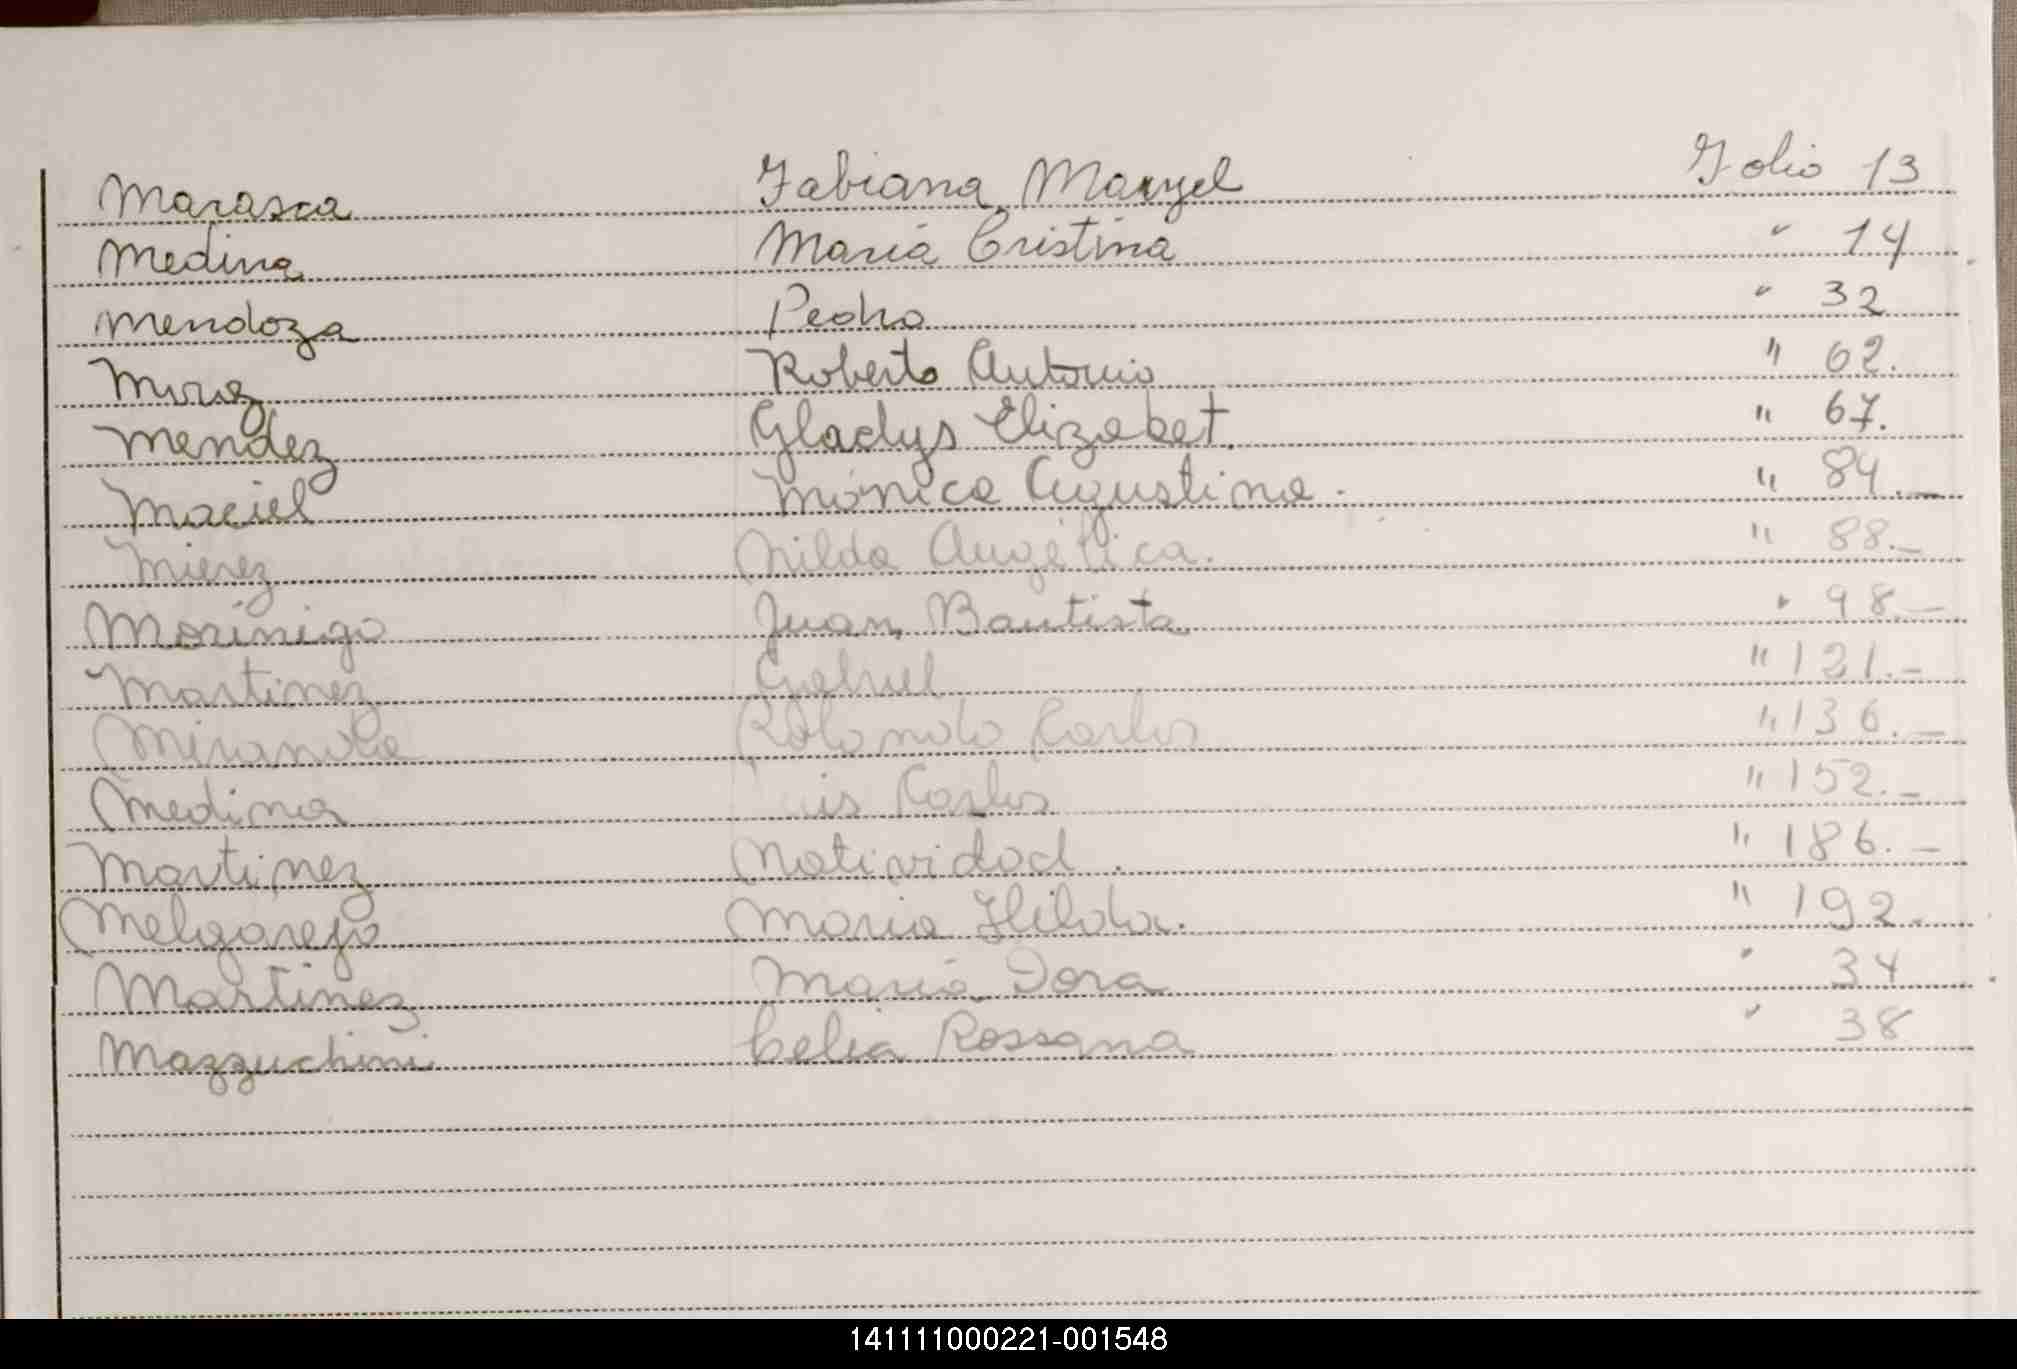 Marasca Fabiana Maryel Folio 13
Medina María Cristina " 14
Mendoza Pedro " 32
Roberto Antonio " 62.
Mendez Gladys Elizabet. " 67.
Maciel Mónica Agustina. " 84.—
Mierez Nilda Angélica. " 88.—
Morinigo Juan Bautista " 98.—
Martinez Gabriel " 121.—
Miranda Rolando Carlos " 136.—
Medina Luis Carlos " 152.—
Martinez Natividad. " 186.—
Melgarejo Maria Hilda. " 192.
Martinez María Dora " 34
Mazzuchini Celia Rossana " 38
141111000221-001548